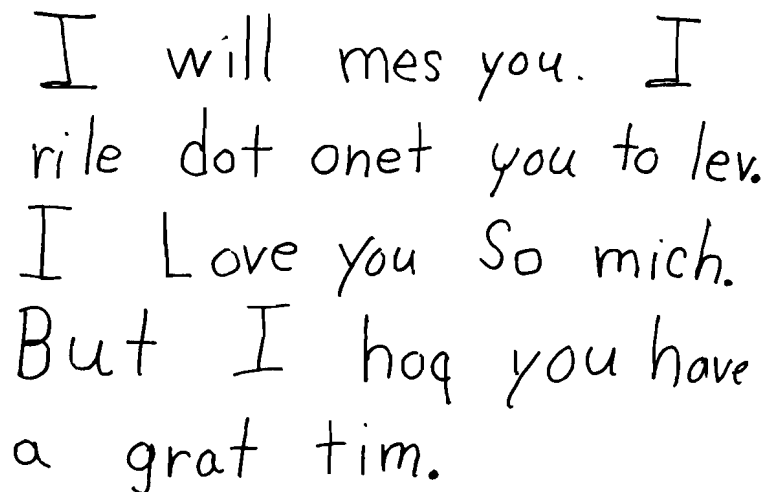 I will mes you. I
rile dot onet you to lev.
I Love you So mich.
But I hoq you have
a grat tim.